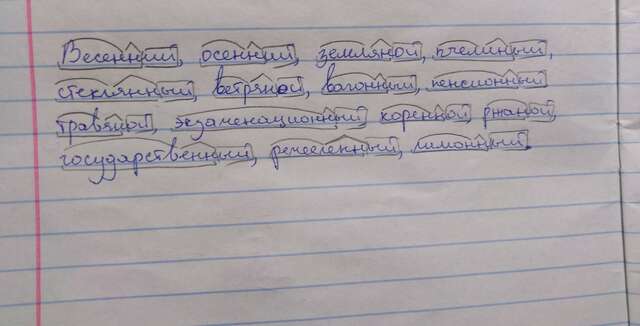 Весенний, осенний, земляной, пчелиный,
стеклянный, ветряной, вагонный, пенсионный
травяной, экзаменационный коренной ржаной,
государственный, ремесленный, лимонный.